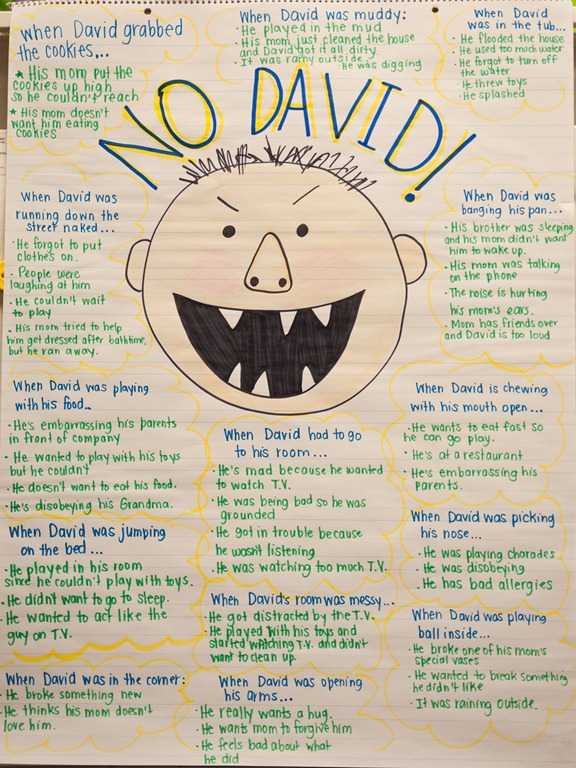 when David grabbed
the cookies...
* His mom put the
cookies up high
so he couldn't reach
* His mom doesn't
want him eating
cookies
When David was muddy:
· He played in the mud
· His mom just cleaned the house
and David got it all dirty.
· It was rainy outside.
· He was digging
When David
was in the tub...
· He flooded the house
· He used too much water
· He forgot to turn off
the water
· He threw toys
· He splashed
NO DAVID!
When David was
running down the
street naked...
· He forgot to put
clothes on.
· People were
laughing at him
· He couldn't wait
to play
· His mom tried to help
him get dressed after bathtime,
but he ran away.
When David was
banging his pan...
· His brother was sleeping
and his mom didn't want
him to wake up.
· His mom was talking
on the phone
· The noise is hurting
his mom's ears.
· Mom has friends over
and David is too loud
When David was playing
with his food...
· He's embarrassing his parents
in front of company
· He wanted to play with his toys
but he couldn't
· He doesn't want to eat his food.
· He's disobeying his Grandma.
When David is chewing
with his mouth open...
· He wants to eat fast so
he can go play.
· He's at a restaurant
· He's embarrassing his
parents.
When David had to go
to his room...
· He's mad because he wanted
to watch T.V.
· He was being bad so he was
grounded
· He got in trouble because
he wasn't listening
· He was watching too much T.V.
When David was jumping
on the bed...
· He played in his room
since he couldn't play with toys.
· He didn't want to go to sleep.
· He wanted to act like the
guy on T.V.
When David was picking
his nose...
· He was playing charades
· He was disobeying
· He has bad allergies
When David's room was messy...
· He got distracted by the T.V.
· He played with his toys and
started watching T.V. and didn't
want to clean up.
When David was playing
ball inside...
· He broke one of his mom's
special vases
· He wanted to break something
he didn't like
· It was raining outside.
When David was in the corner:
· He broke something new
· He thinks his mom doesn't
love him.
When David was opening
his arms...
· He really wants a hug.
· He wants mom to forgive him
· He feels bad about what
he did